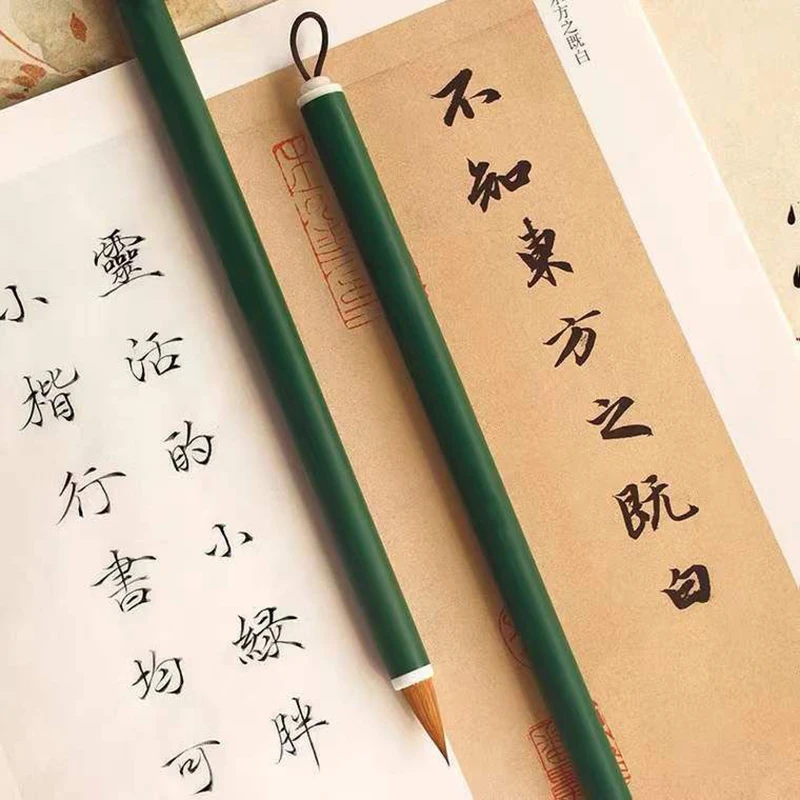 東方之既白
不知東方之既白
靈活的小綠胖
小楷行書均可